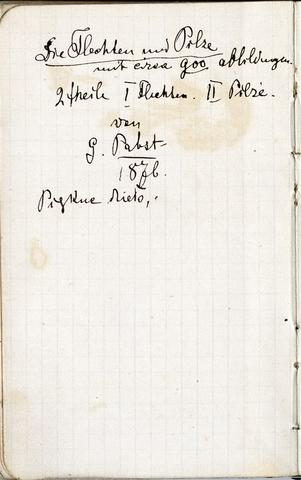 Die Flechten und Pilze
mit circa 900 abbildungen.
2 theile I Flechten. II Pilze.
von
G. Pabst
1876.